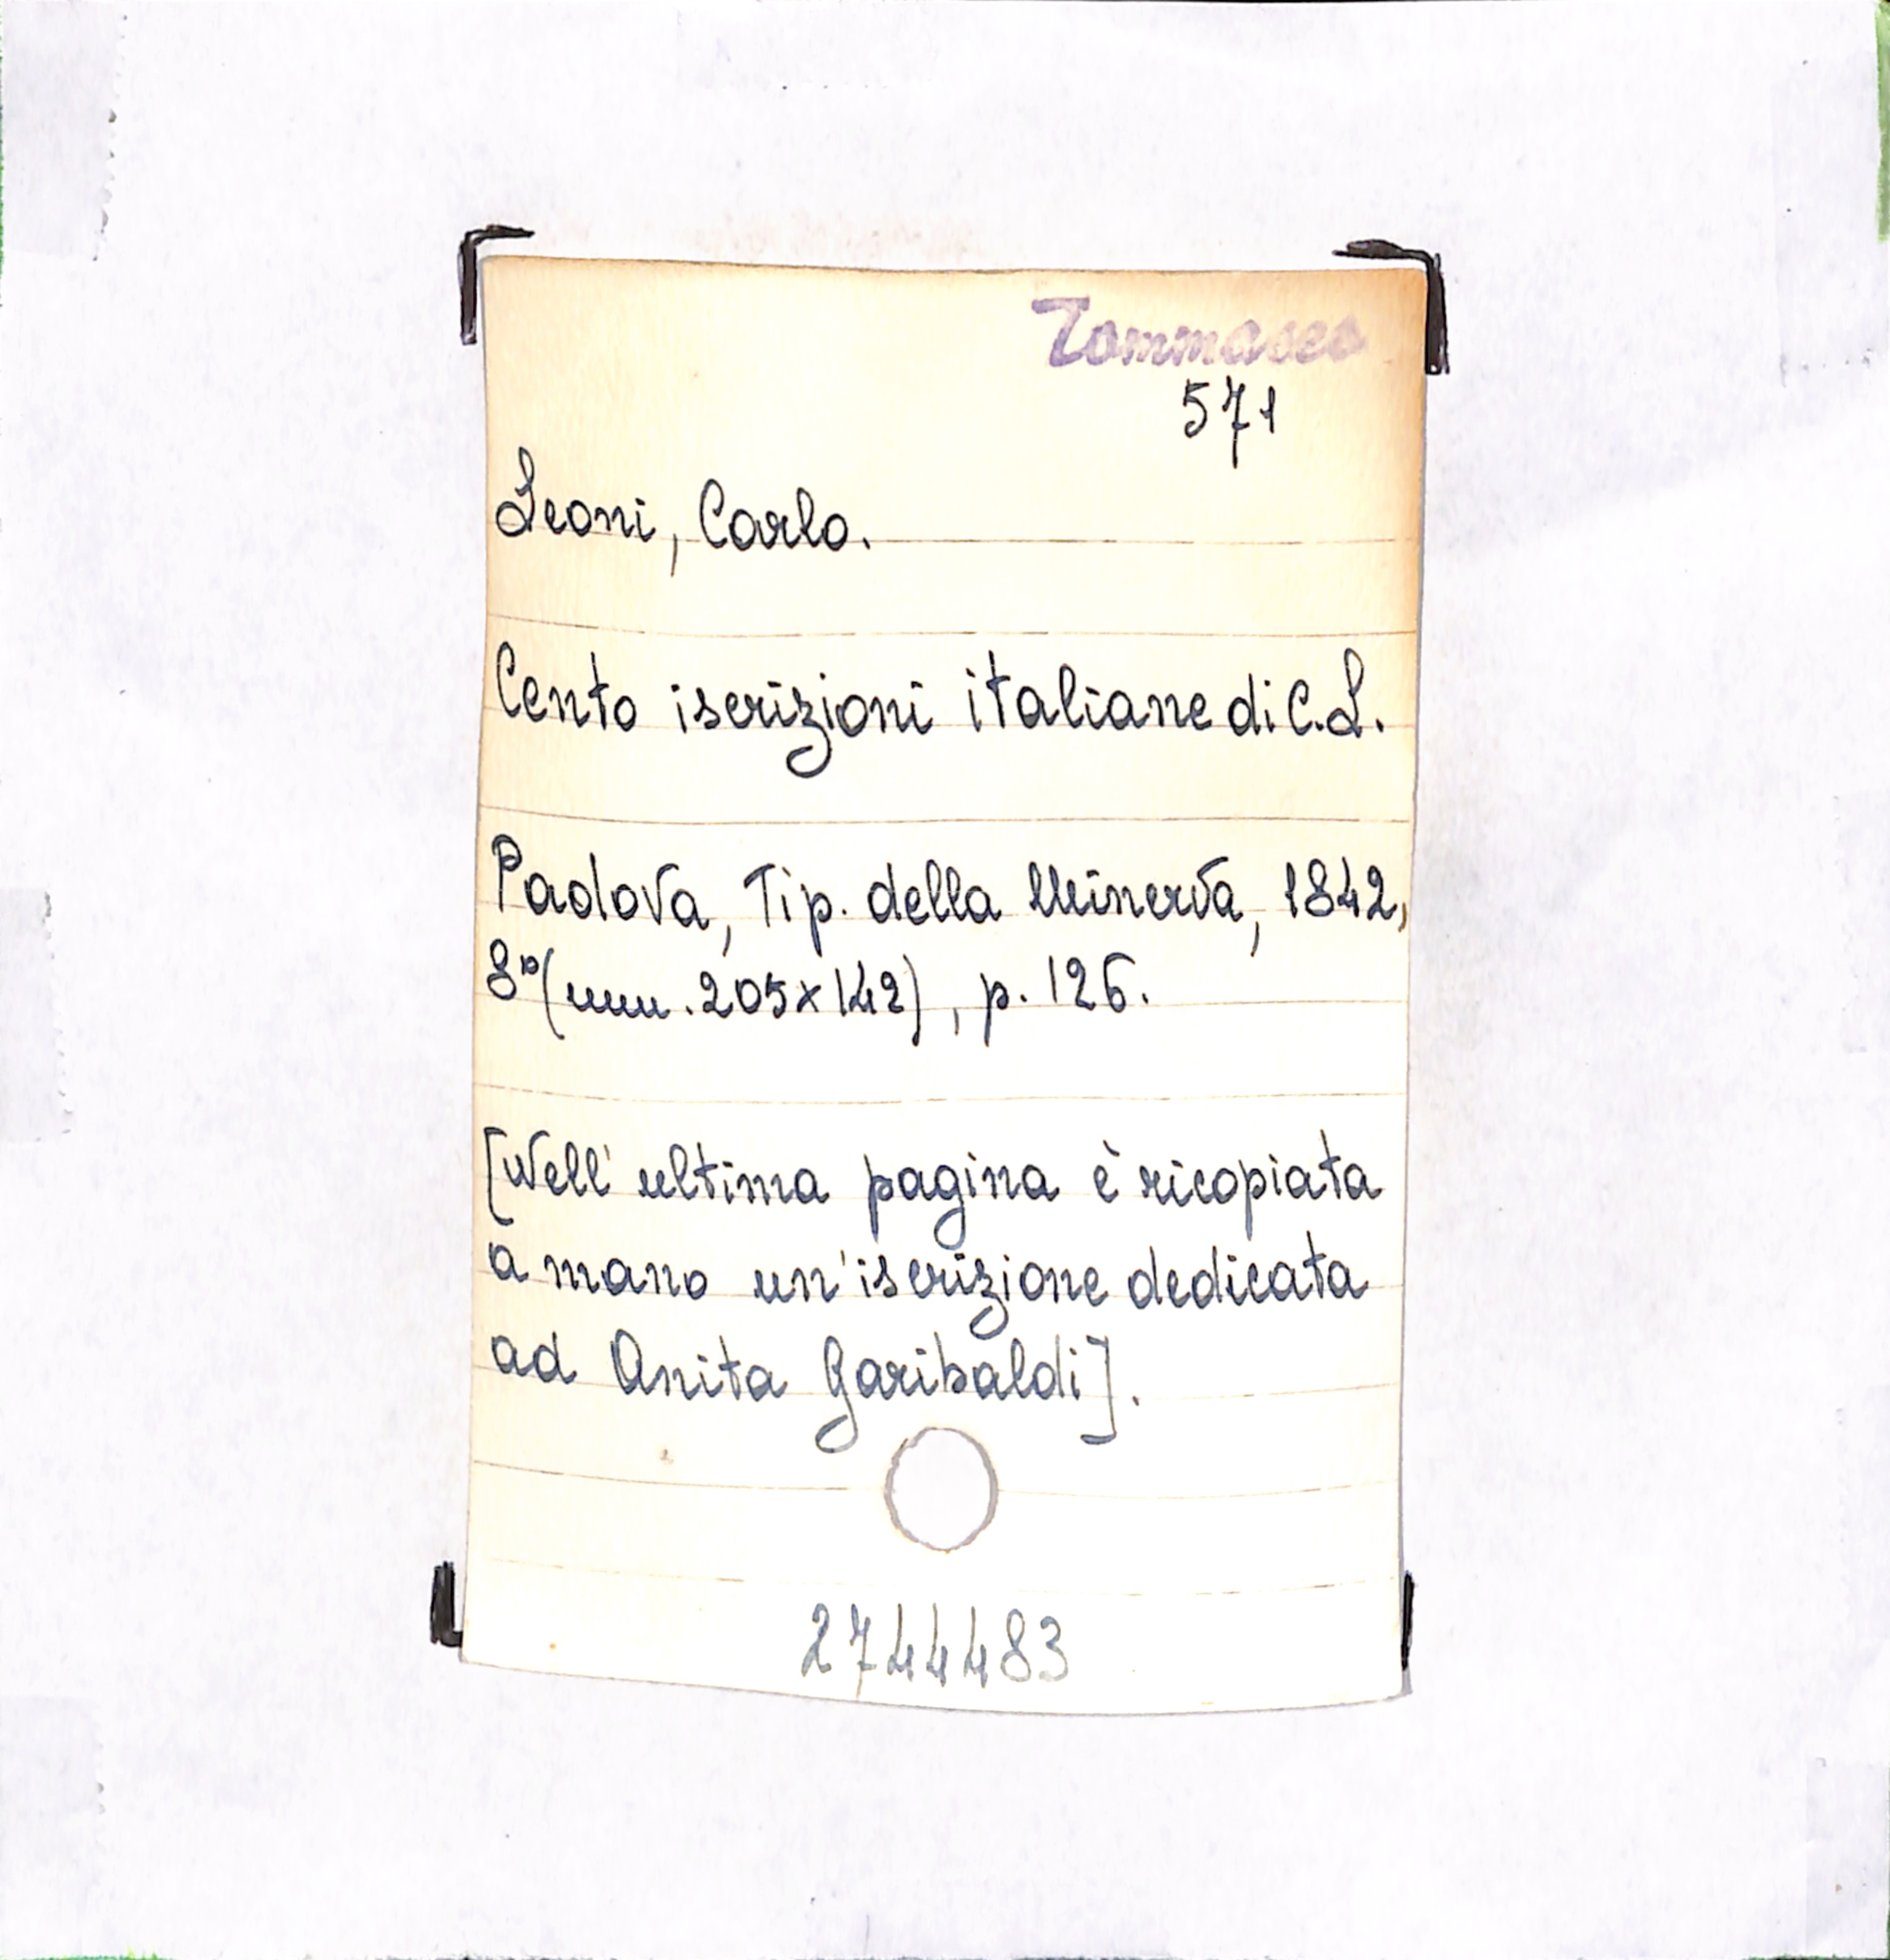 Tommaseo
571
Leoni, Carlo.
Cento iscrizioni italiane di C.L.
Padova, Tip. della Minerva, 1842,
8° (mm. 205x142), p. 126.
[Nell'ultima pagina è ricopiata
a mano un'iscrizione dedicata
ad Anita Garibaldi].
2744483